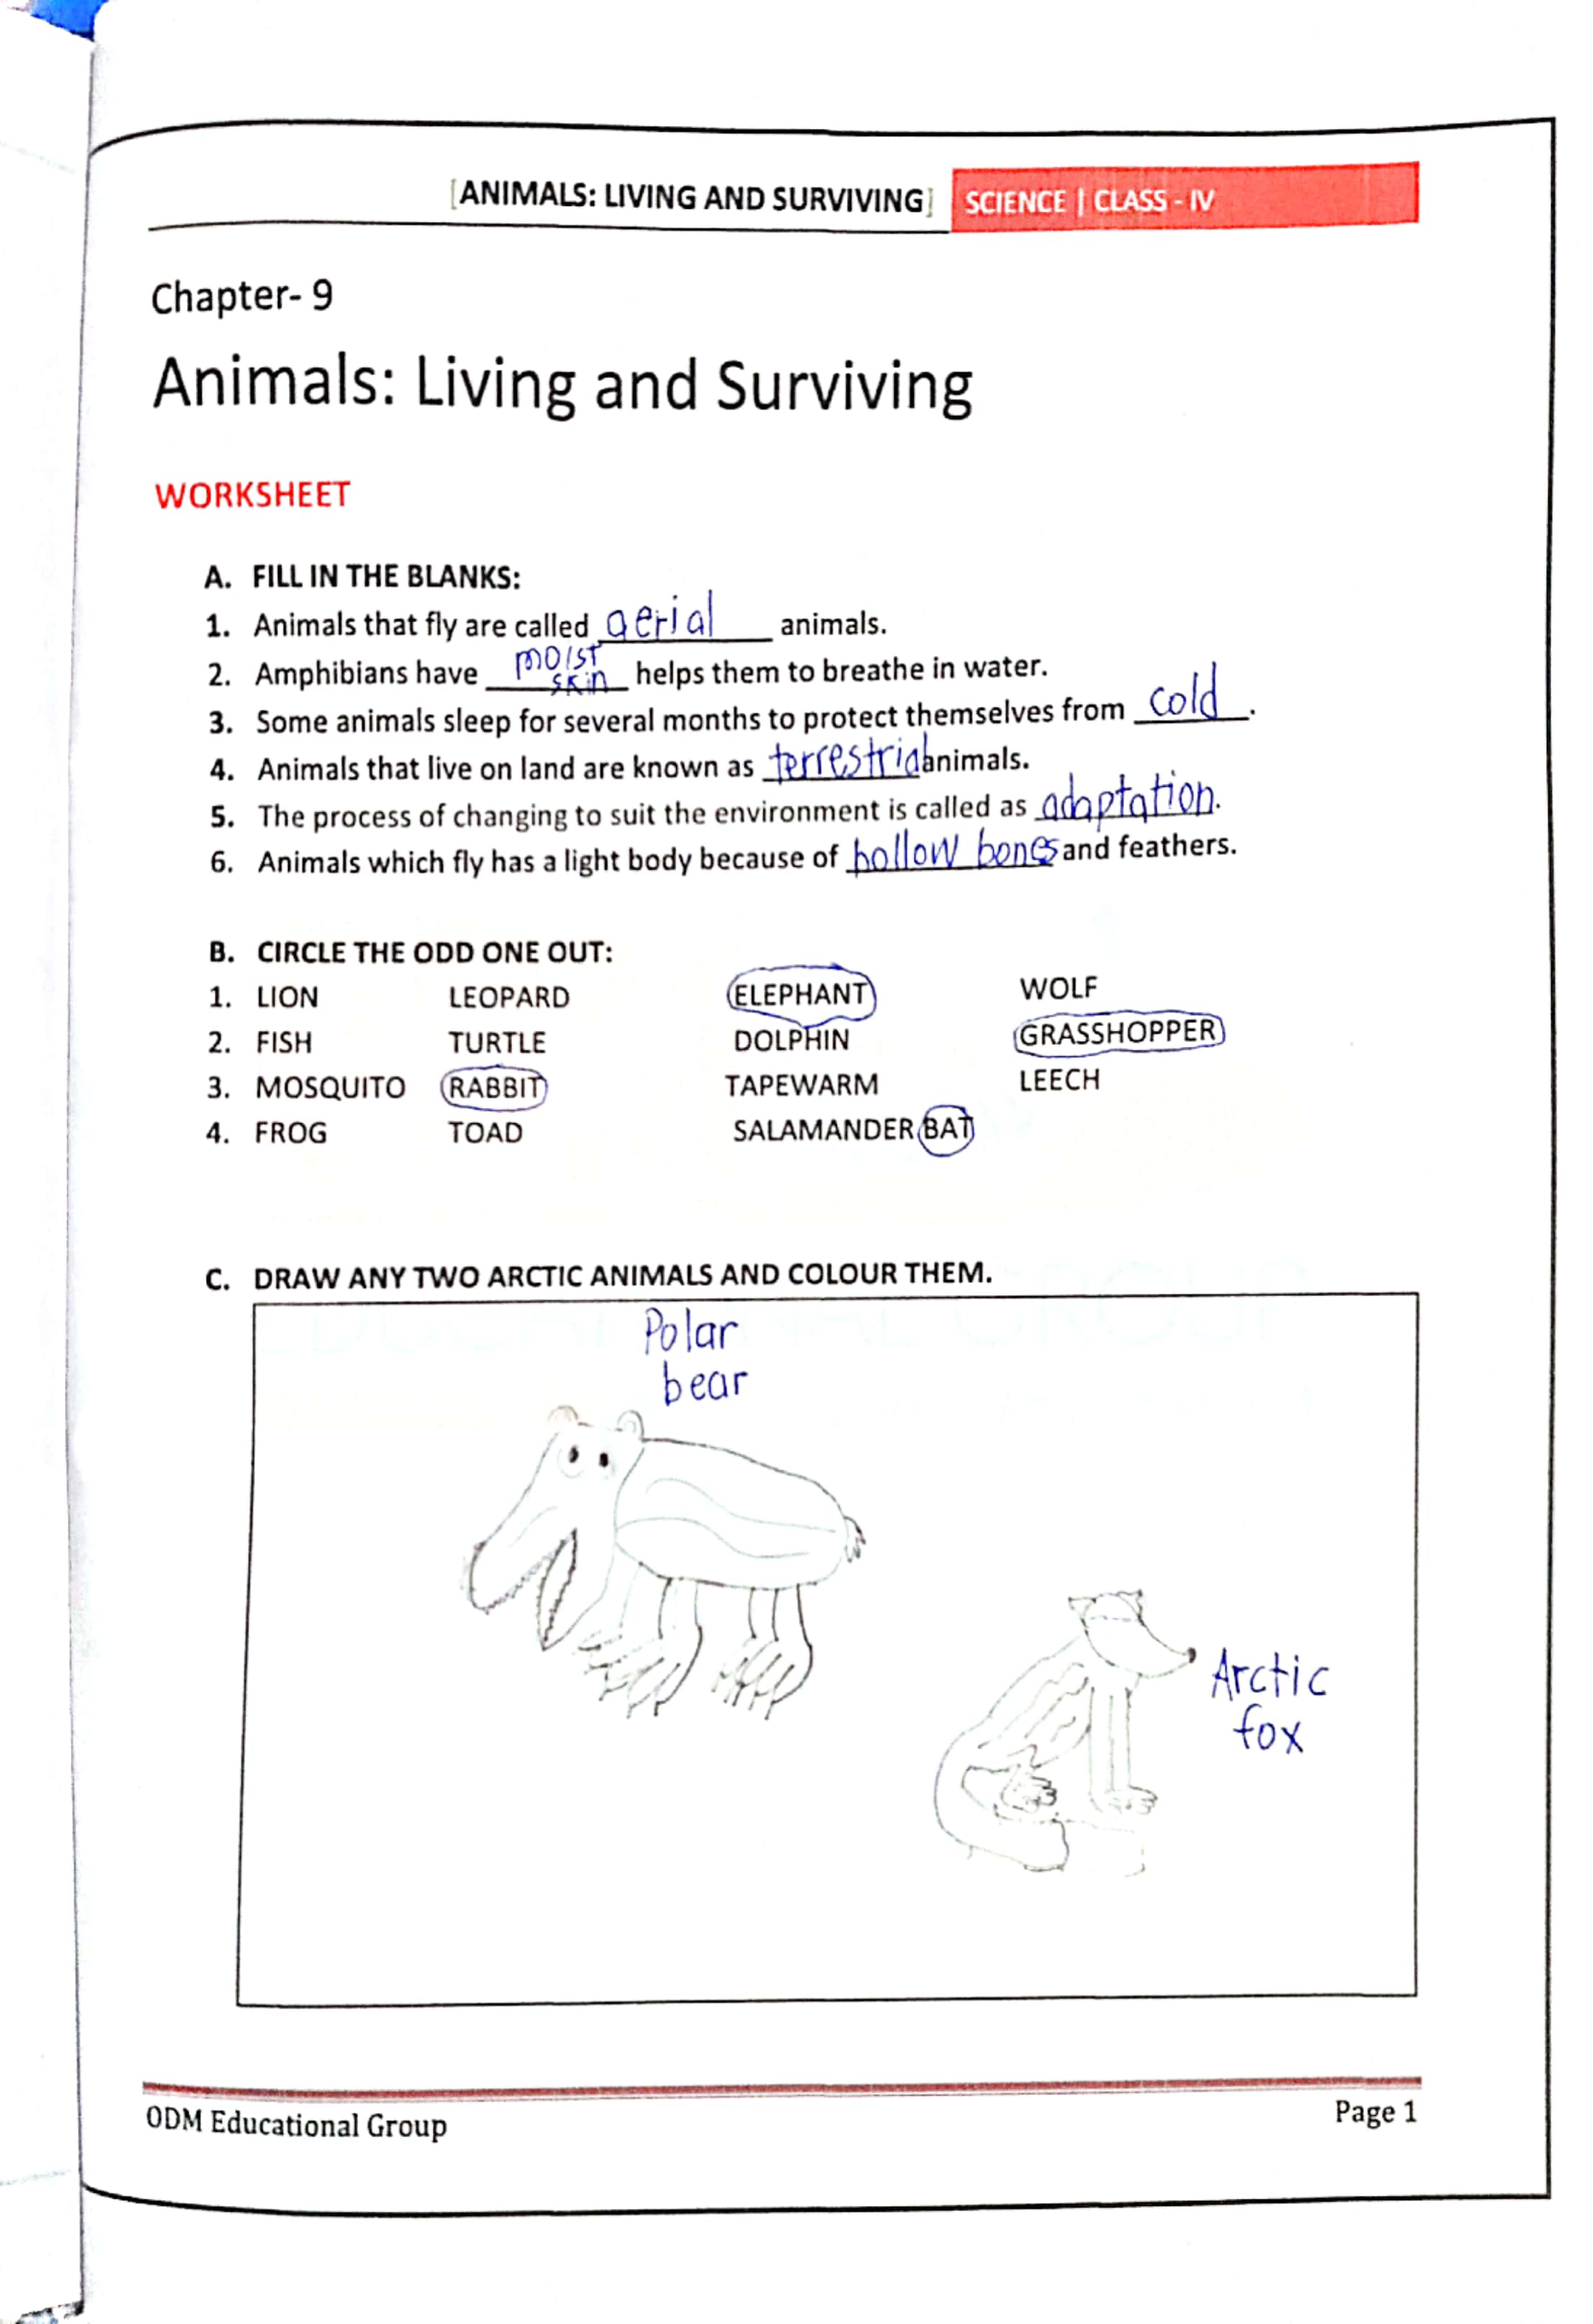 [ANIMALS: LIVING AND SURVIVING] SCIENCE | CLASS - IV
Chapter- 9
Animals: Living and Surviving
WORKSHEET
A. FILL IN THE BLANKS:
1. Animals that fly are called aerial animals.
2. Amphibians have moist skin helps them to breathe in water.
3. Some animals sleep for several months to protect themselves from cold.
4. Animals that live on land are known as terrestrial animals.
5. The process of changing to suit the environment is called as adaptation.
6. Animals which fly has a light body because of hollow bones and feathers.
B. CIRCLE THE ODD ONE OUT:
1. LION LEOPARD ELEPHANT WOLF
2. FISH TURTLE DOLPHIN GRASSHOPPER
3. MOSQUITO RABBIT TAPEWARM LEECH
4. FROG TOAD SALAMANDER BAT
C. DRAW ANY TWO ARCTIC ANIMALS AND COLOUR THEM.
Polar
bear
Arctic
fox
ODM Educational Group Page 1